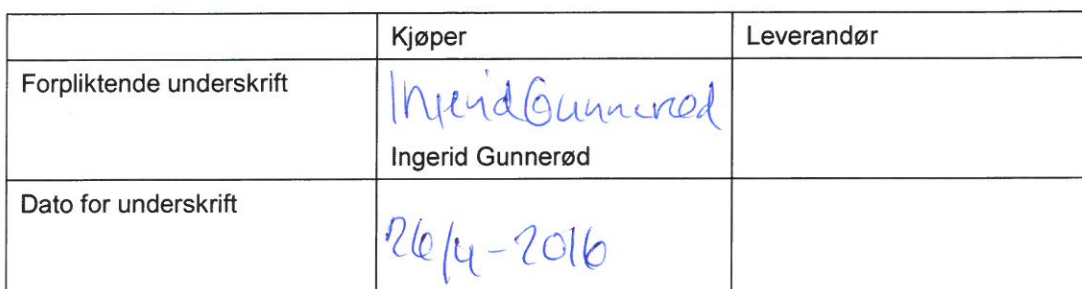 Kjøper Leverandør
Forpliktende underskrift
Ingerid Gunnerød
Ingerid Gunnerød
Dato for underskrift
26/4-2016